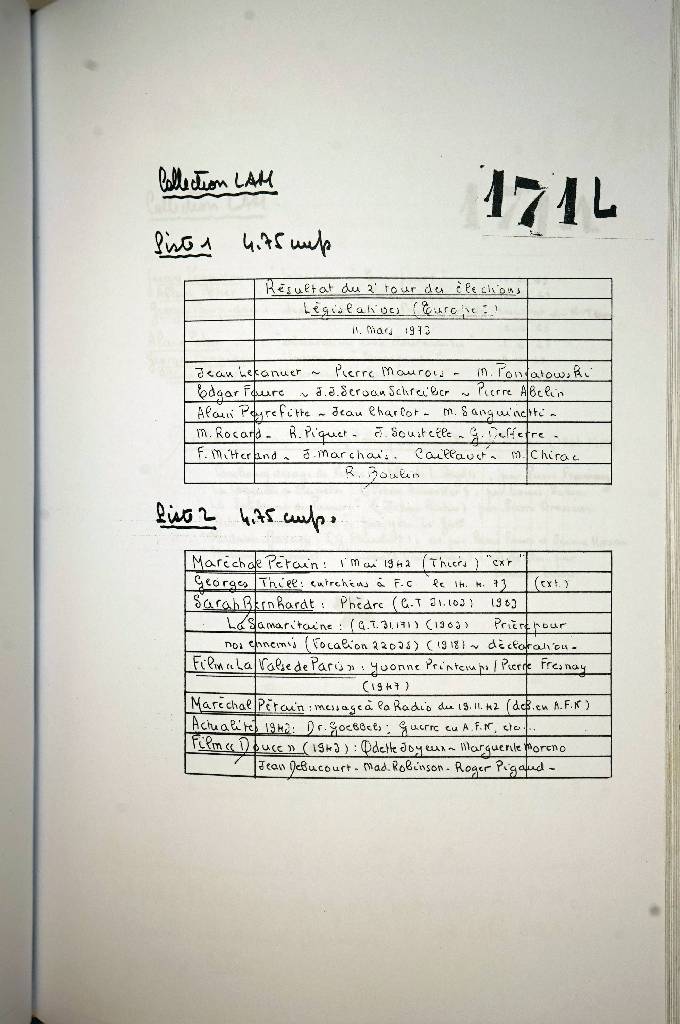 Collection LAM
171L
Piste 1 4.75 cm/s
Résultat du 2e tour des élections
Législatives (Europe 1)
11. Mars 1973
Jean Lecanuet ~ Pierre Maurois - M. Poniatowski
Edgar Faure ~ J.J. Servan Schreiber ~ Pierre Abelin
Alain Peyrefitte ~ Jean Charlot - M. Sanguinetti -
M. Rocard - R. Piquet - J. Soustelle - G. Defferre -
F. Mitterand ~ J. Marchais. Caillavet - M. Chirac
R. Boulin
Piste 2 4.75 cm/s.
Maréchal Pétain : 1er Mai 1942 (Thiers) "ext"
Georges Thill : entretiens à F.C le 14. 4. 73 (ext.)
Sarah Bernhardt : Phèdre (G.T 31.103) 1903
La Samaritaine : (G.T. 31.171) (1903) Prière pour
nos ennemis (Vocalion 22035) (1918) ~ déclaration -
Film « La Valse de Paris » : Yvonne Printemps / Pierre Fresnay
(1947)
Maréchal Pétain : message à la Radio du 19.11.42 (deb. en A.F.N)
Actualités 1943 : Dr. Goebbels ; Guerre en A.F.N, etc...
Film « Douce » (1943) : Odette Joyeux ~ Marguerite Moreno
Jean Debucourt - Mad. Robinson - Roger Pigaud -